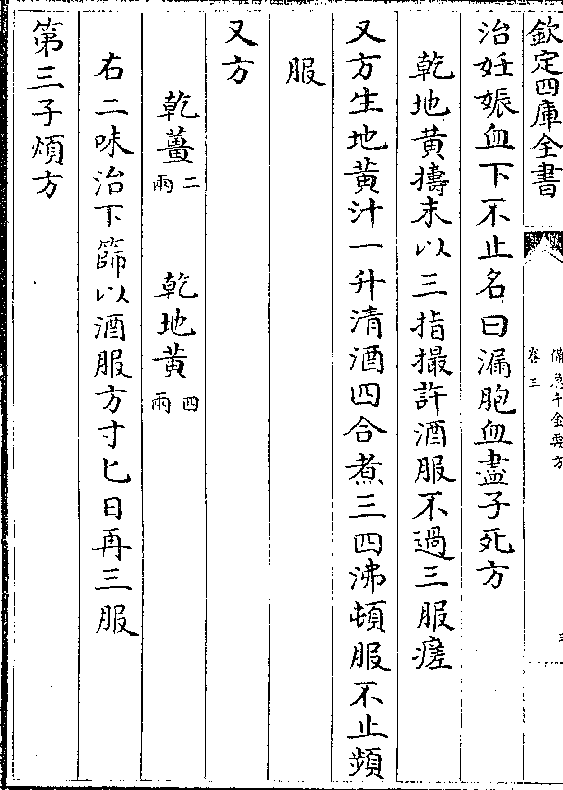 欽定四庫全書
備急千金要方
卷三
治妊娠血下不止名曰漏胞血盡子死方
乾地黄擣末以三指撮許酒服不過三服瘥
又方生地黄汁一升清酒四合煮三四沸頓服不止頻
服
又方
乾薑二兩　乾地黄四兩
右二味治下篩以酒服方寸匕日再三服
第三子煩方